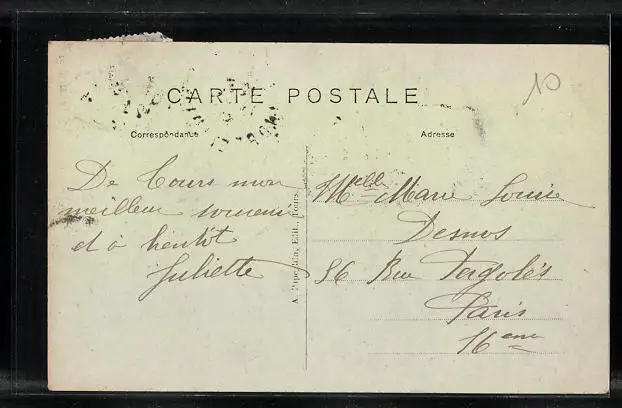 10
CARTE POSTALE
Correspondance
Adresse
De Tours mon
meilleur souvenir
et à bientôt
Juliette
A. Papeghin, Edit., Tours.
Melle Marie Louise
Desnos
56 Rue Pergolès
Paris
16eme